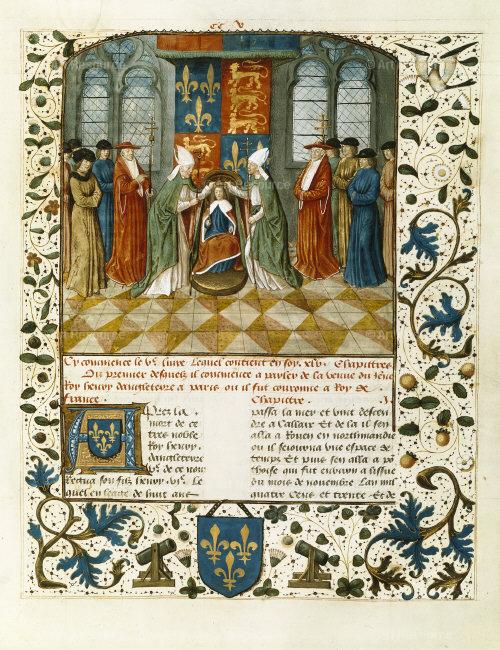 cc V
Cy commence le Ve. liure Lequel contient en soy .xlv. Chapittres
Du premier desquelz il commence a parler de la venue du Jeune
Roy henry dangleterre a paris ou il fut couronne a Roy de
france. Chapittre. J.
Apres la
mort de ce
tres noble
Roy henry
dangleterre
Ve. de ce nom
Regna son filz henry .VIe. Le
quel en leage de huit ans
passa la mer et vint descen
dre a Calaix Et de la il sen
alla a Rouen en normandie
ou il seiourna une espace de
temps Et puis sen alla a po
thoise qui fut enuiron a lissue
du mois de nouembre Lan mil
quatre Cens et trente Et de